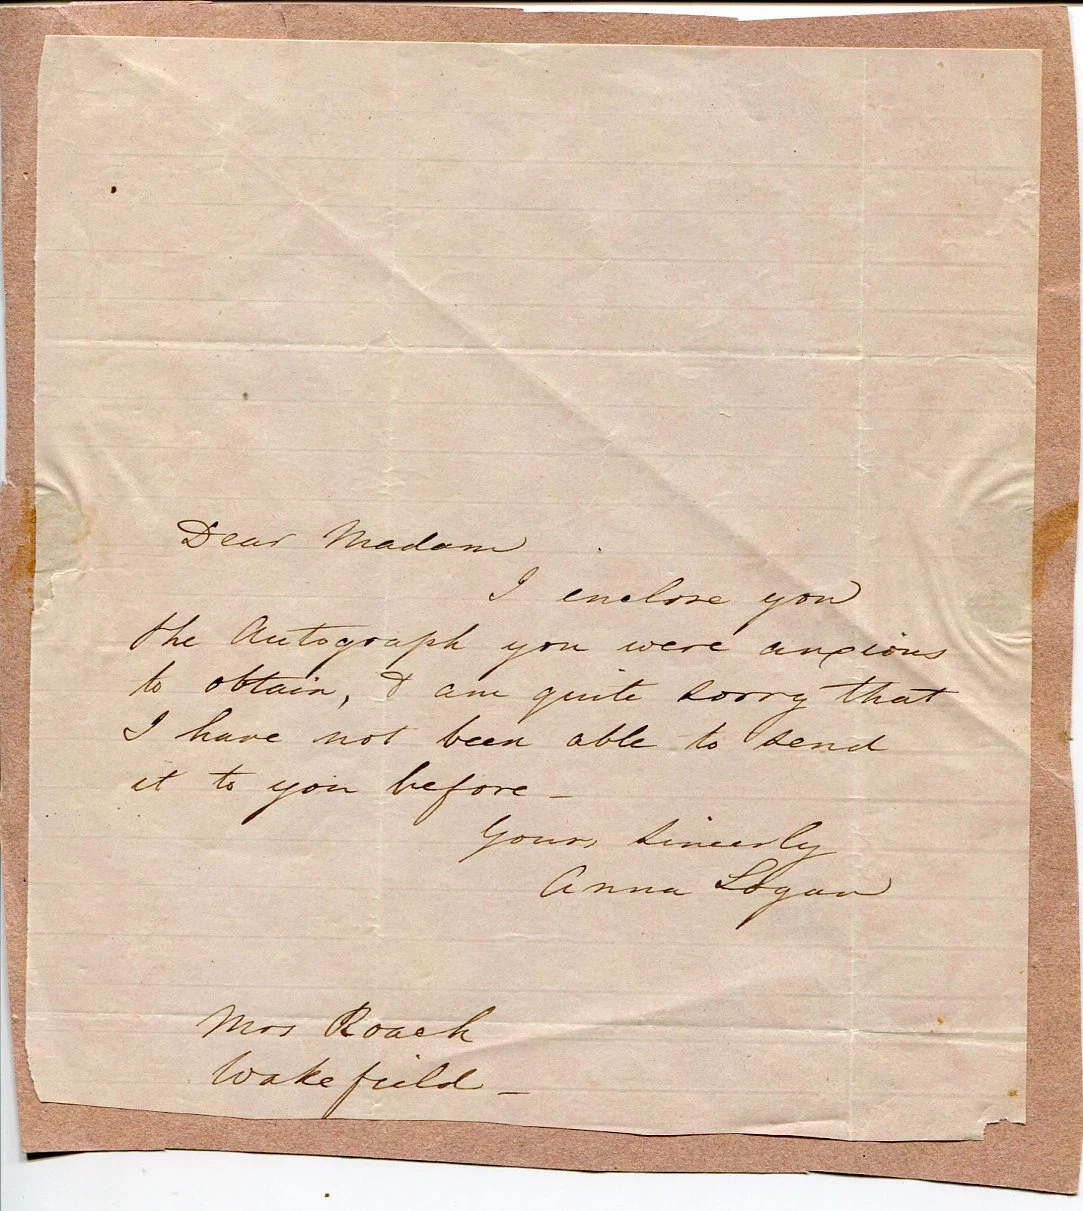 Dear Madam
I enclose you
the Autograph you were anxious
to obtain, & am quite sorry that
I have not been able to send
it to you before -
Yours sincerly
Anna Logan
Mrs Roach
Wakefield -